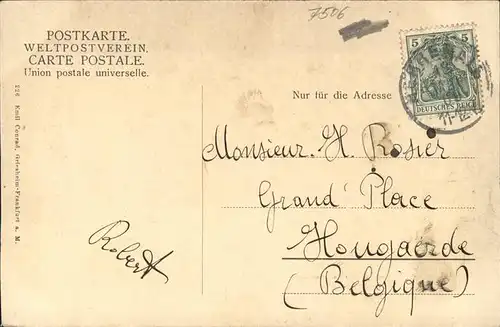 7506
POSTKARTE.
WELTPOSTVEREIN.
CARTE POSTALE.
Union postale universelle.
5 5
DEUTSCHES REICH
Nur für die Adresse
Monsieur H. Rosier
Grand' Place
Hougaerde
(Belgique)
Robert
226 Emil Conrad, Griesheim-Frankfurt a. M.